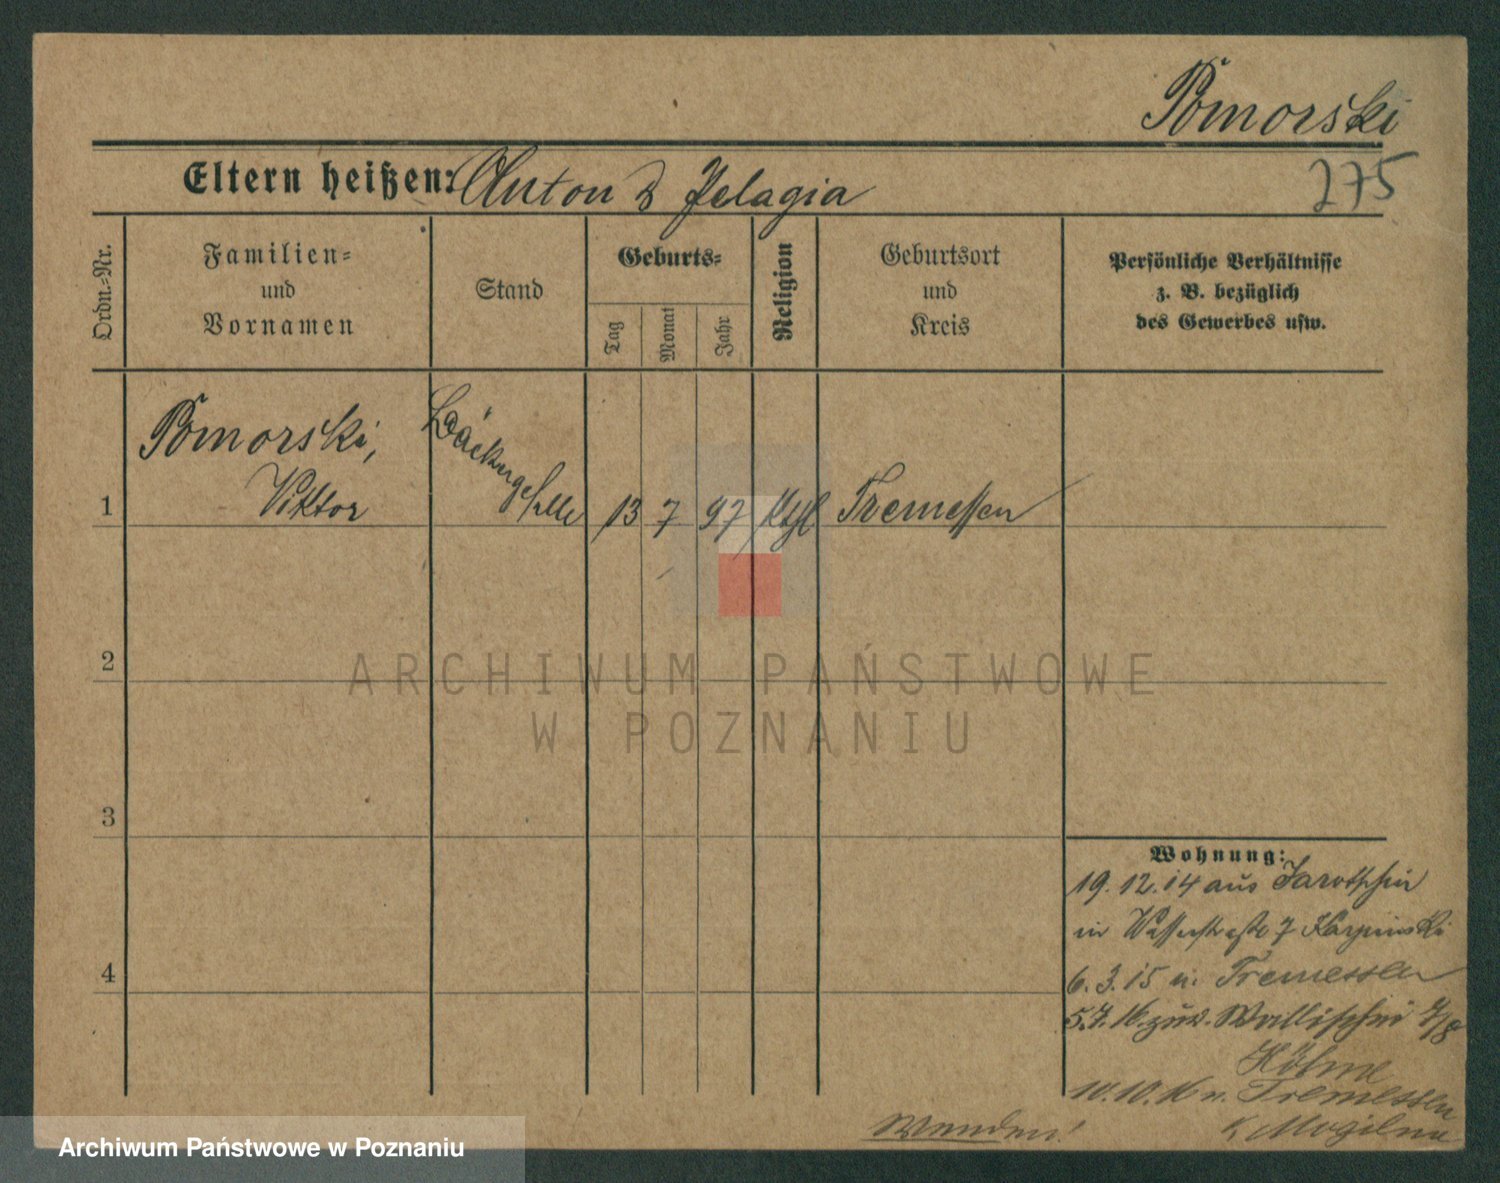 Pomorski
Eltern heißen: Anton & Pelagia
275
Ordn.-Nr.
Familien-
und
Vornamen
Stand
Geburts-
Tag
Monat
Jahr
Religion
Geburtsort
und
Kreis
Persönliche Verhältnisse
z. B. bezüglich
des Gewerbes usw.
1
Pomorski,
Viktor
Bäckergeselle
13 7 97 kthl Tremessen
2
ARCHIWUM PAŃSTWOWE
W POZNANIU
3
Wohnung:
19. 12. 14 aus Jarotschin
in Wasserstraße 7 Karpinski
4
6. 3. 15 n. Tremessen
5. 7. 16 zur. Wallischei
10. 10. 16 n. Tremessen
K Mogilno
Wenden!
Archiwum Państwowe w Poznaniu